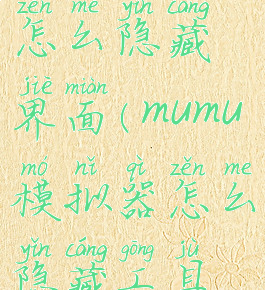 zěn me yǐn cáng
怎么隐藏
jiè miàn
界面(mumu
mó nǐ qì zěn me
模拟器怎么
yǐn cáng gōng jù
隐藏工具